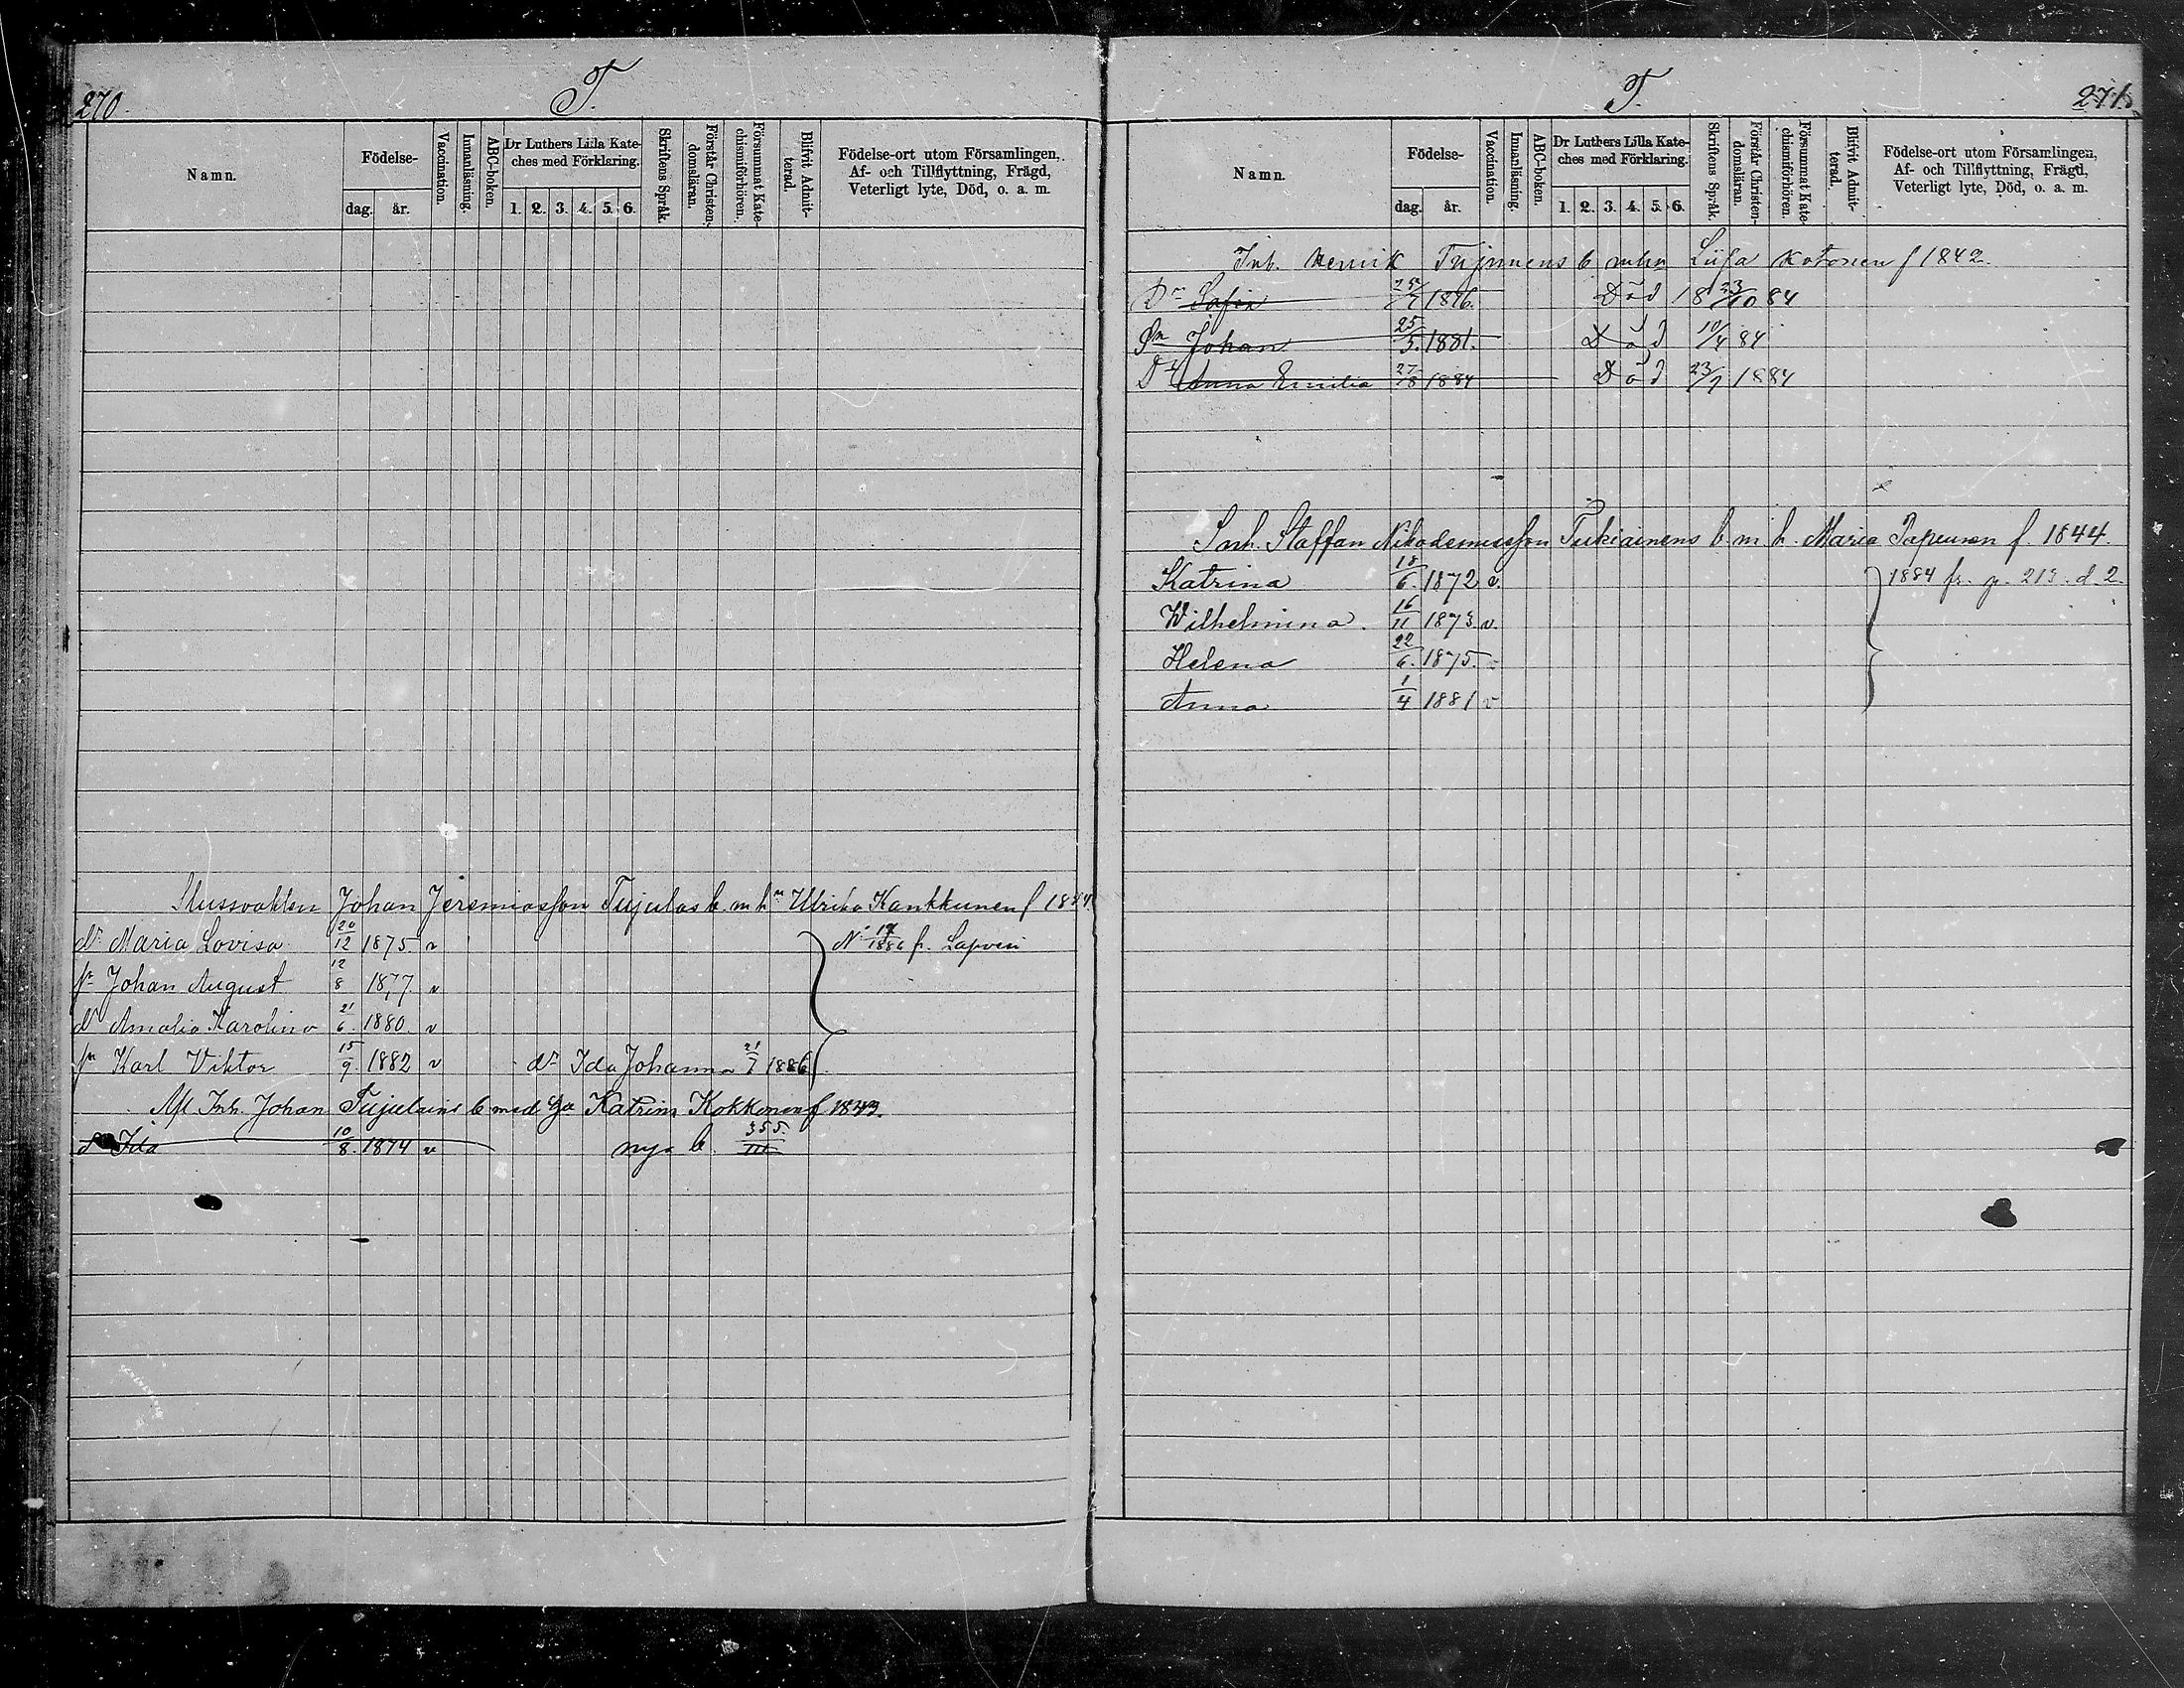 270.
T.
Namn.
Födelse-
dag. år.
Vaccination.
Innanläsning.
ABC-boken.
Dr Luthers Lilla Kate-
ches med Förklaring.
1. 2. 3. 4. 5. 6.
Skriftens Språk.
Förstår Christen-
domsläran.
Försummat Kate-
chismiförhören.
Blifvit Admit-
terad.
Födelse-ort utom Församlingen,
Af- och Tillflyttning, Frägd,
Veterligt lyte, Död, o. a. m.
Slussvakten Johan Jeremiasson Tujulas b. m. hn Ulrika Kankkunen f 1844
dr Maria Lovisa 20/12 1875. v No 17/1886 fr. Lapvesi
sn Johan August 12/8 1877. v
dr Amalia Karolina 21/6. 1880. v
sn Karl Viktor 15/9. 1882 v dr Ida Johanna 21/7 1886
Afl Inh. Johan Tujulains b med Katrina Kokkonen f 1843.
dr Ida 10/8. 1874 v nya b. 355./III
T.
271.
Namn.
Födelse-
dag. år.
Vaccination.
Innanläsning.
ABC-boken.
Dr Luthers Lilla Kate-
ches med Förklaring.
1. 2. 3. 4. 5. 6.
Skriftens Språk.
Förstår Christen-
domsläran.
Försummat Kate-
chismiförhören.
Blifvit Admit-
terad.
Födelse-ort utom Församlingen,
Af- och Tillflyttning, Frägd,
Veterligt lyte, Död, o. a. m.
Inh. Henrik Tujunens b mhn Liisa Kotonen f 1842.
Dr Sofia 1876. Död 18 23/10 84
Sn Johan 25/5. 1881. Död 10/4 84
Dr Anna Emilia 27/8 1884 Död 23/9 1884
Inh. Staffan Nikodemusson Tukiainens b. m. h. Maria Papunen f. 1844.
Katrina 18/6. 1872 v. 1884 fr. p. 213. d. 2.
Wilhelmina. 16/11 1873. v.
Helena 22/6. 1875. v
Anna 1/4 1881 v